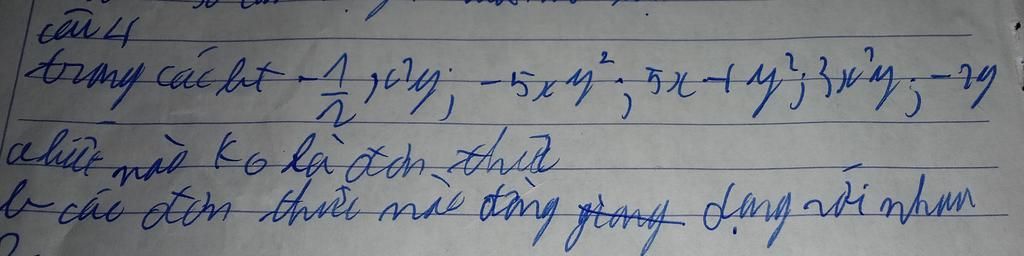 câu 4
trong các bt -1/2 x²y; -5xy²; 5x + y²; 3x²y; -2y
a biểu nào ko là đơn thức
b các đơn thức nào đồng dạng với nhau